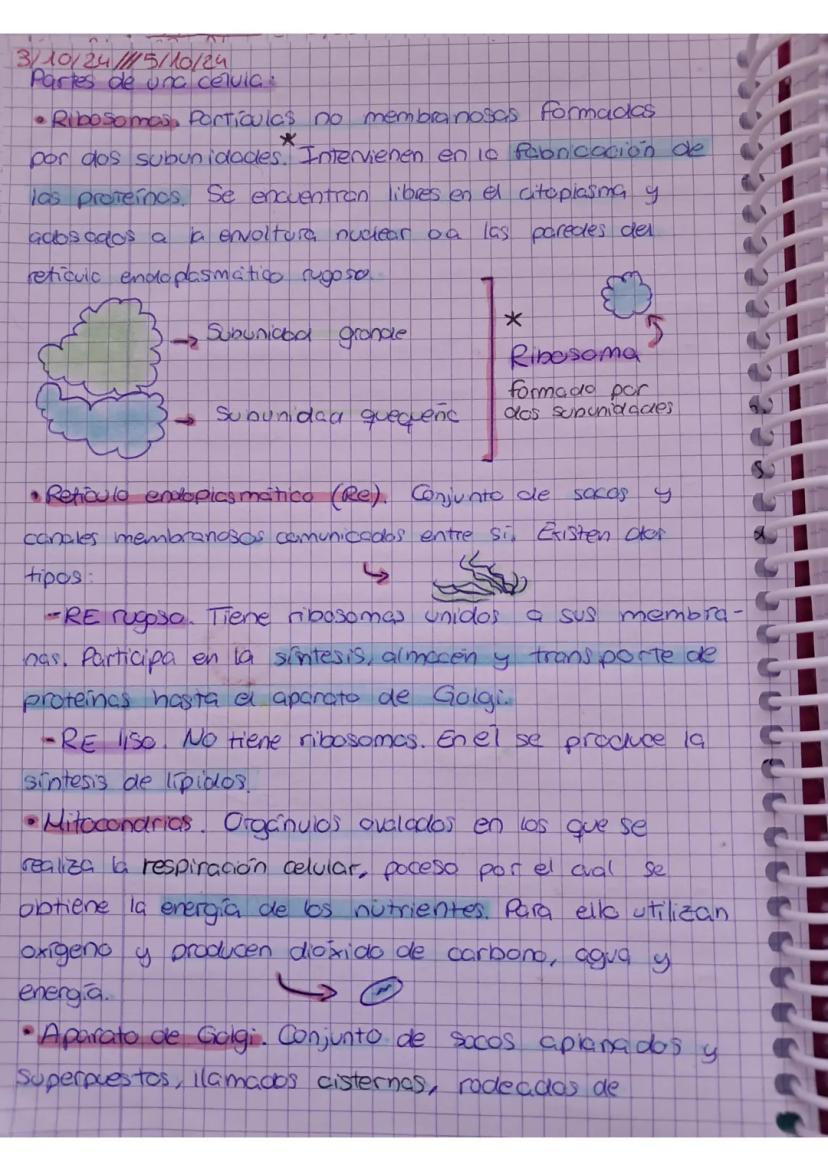 3/10/24///5/10/24
Partes de una célula:
• Ribosomas. Partículas no membranosas formadas
por dos subunidades.* Intervienen en la fabricación de
las proteínas. Se encuentran libres en el citoplasma y
adosados a la envoltura nuclear o a las paredes del
retículo endoplasmático rugoso.
→ Subunidad grande
→ Subunidad quequeña
*
Ribosoma
formado por
dos subunidades
• Retículo endoplasmático (Re). Conjunto de sacos y
canales membranosos comunicados entre sí. Existen dos
tipos:
-RE rugoso. Tiene ribosomas unidos a sus membra-
nas. Participa en la síntesis, almacén y transporte de
proteínas hasta el aparato de Golgi.
-RE liso. No tiene ribosomas. En él se produce la
síntesis de lípidos.
• Mitocondrias. Orgánulos ovalados en los que se
realiza la respiración celular, poceso por el cual se
obtiene la energía de los nutrientes. Para ello utilizan
oxígeno y producen dióxido de carbono, agua y
energía.
• Aparato de Golgi. Conjunto de sacos aplanados y
superpuestos, llamados cisternas, rodeados de